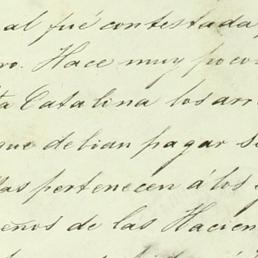 al fué contestada
ro. Hace muy poco
ta Catalina los arr
que debian pagar s
las pertenecen á los
eños de las Hacien